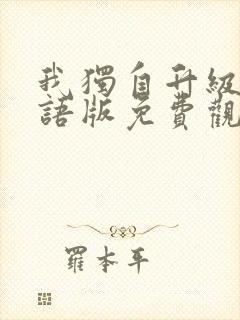 我獨自升級
語版免費觀
羅本平